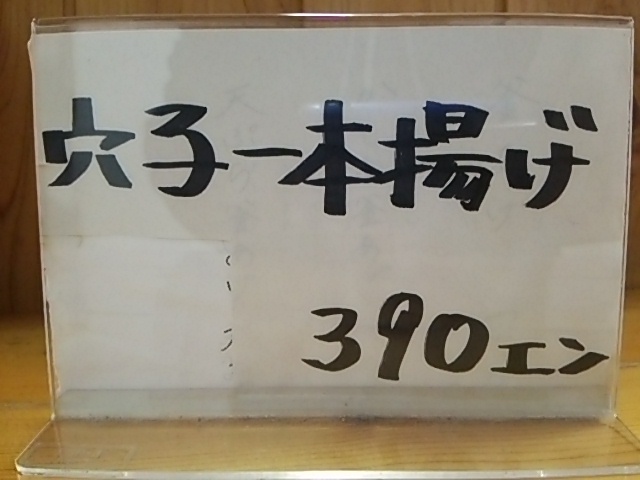 穴子一本揚げ
390エン